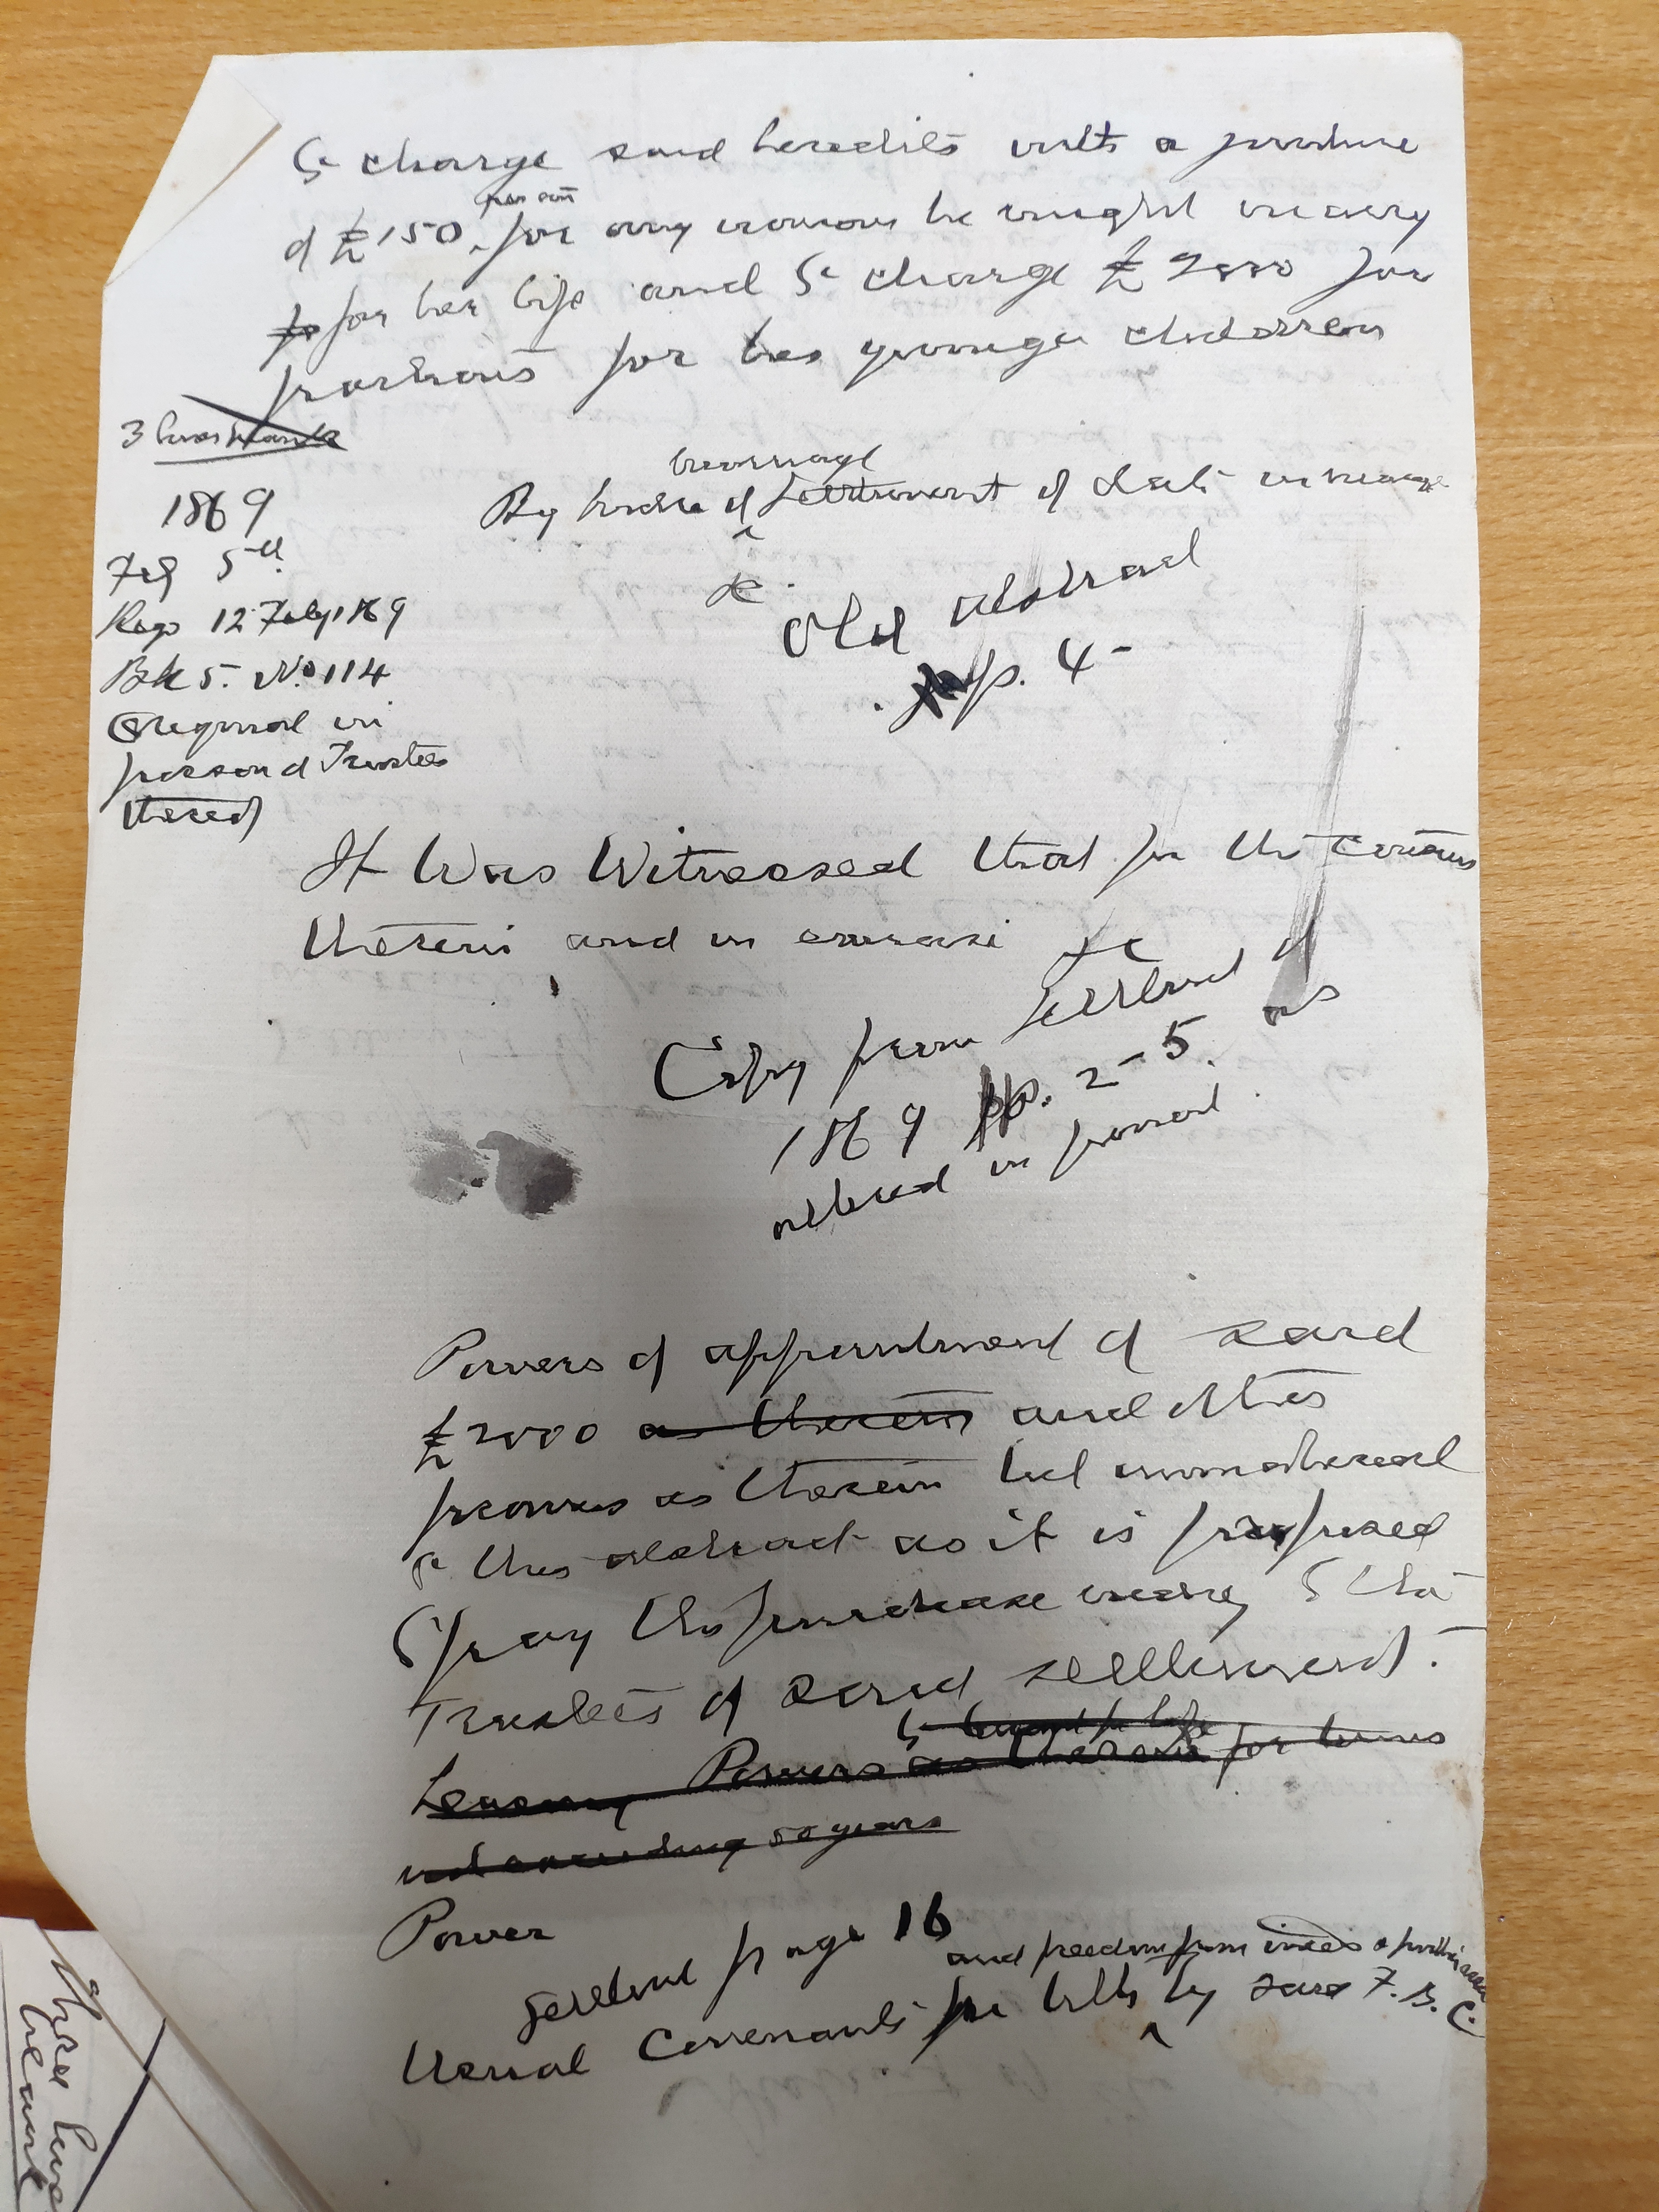 to charge said heredits with a jointure
of £150 per ann for any woman he might marry
for her life and to charge £2000 for
portions for his younger children
3 lives
1869
Feb 5th
Reg 12 Feby 1869
Bk 5. No. 114
Original in
posson of Trustees
thereof
By Indre of marriage Settlement of date in marge
&c.
Old abstract
p. 4-
It Was Witnessed that for the Consons
therein and in
&c
Copy from Settlement of
1869 pp. 2-5. as
altered in pencil.
Powers of appointment of said
£2000 as therein and other
powers as therein but immaterial
to this abstract as it is proposed
to pay the purchase money to the
Trustees of said settlement.
to for life
Leasing Powers as therein for terms
not exceeding 50 years
Power
Settlement page 16
and freedom from incces & further
Usual Covenants for title by said F. B. C.
Three lives